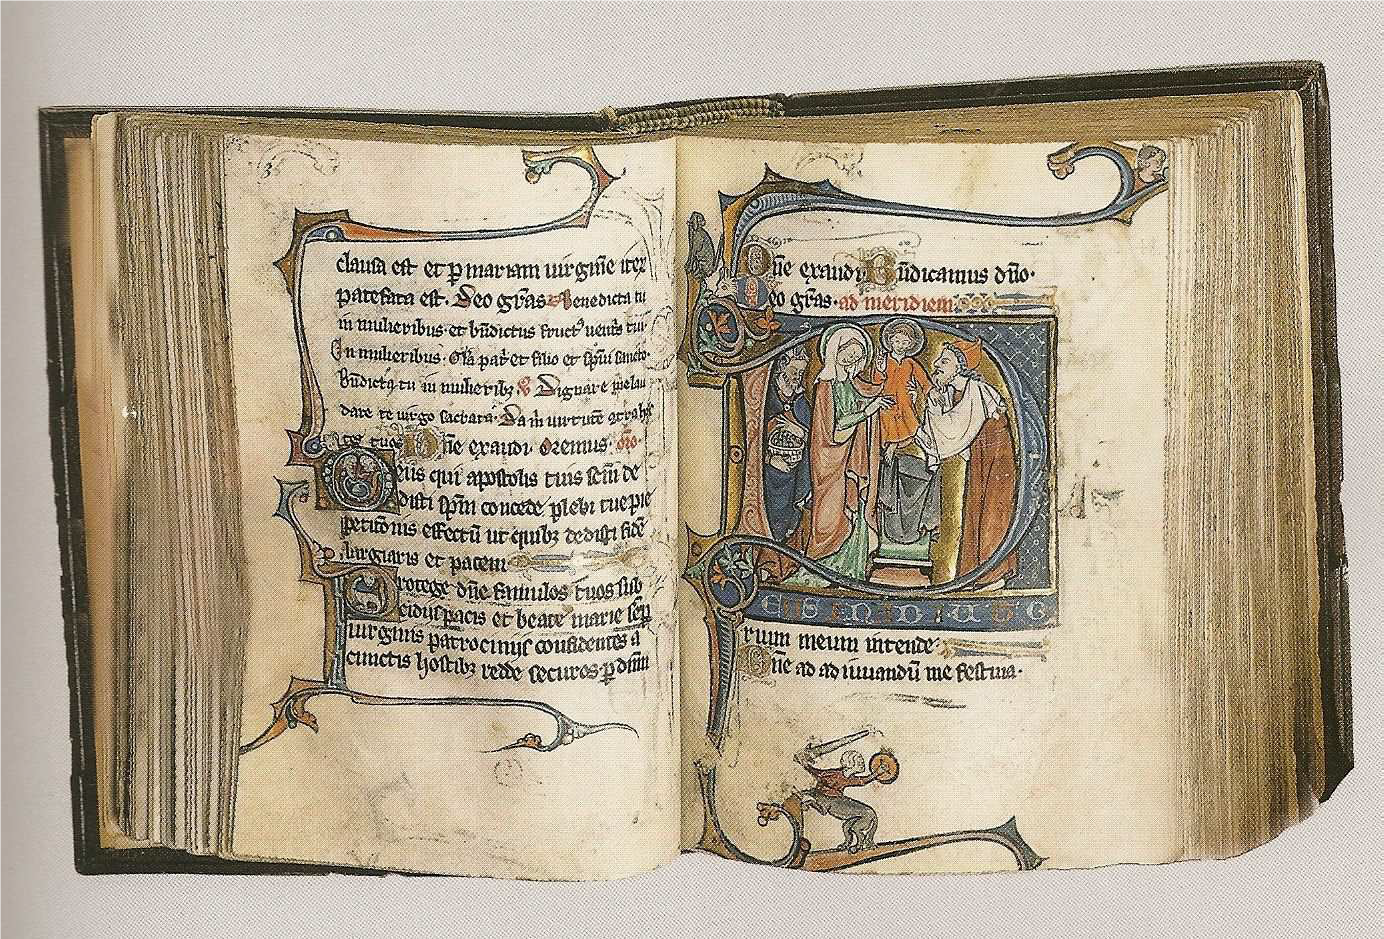 clausa est et p mariam uirgine iter
patefata est. Deo gras Benedicta tu
in mulieribus et bndictus fruct uents tui.
In mulieribus. Gla patri et filio et spui sancto.
Bndicta tu in mulieribz Dignare me lau
dare te uirgo sacrata. Da m uirtute
tuos Dne exaudi. Oremus. oro.
Deus qui apostolis tuis scm de
disti spm concede plebi tue pie
peticonis effectu ut quibz dedisti fide
largiaris et pacem
Protege dne famulos tuos sub
sidijs pacis et beate marie semp
uirginis patrocinijs confidentes a
cunctis hostibz redde securos. p dnm
Dne exaudi Bndicamus dno.
Deo gras. ad meridiem
DEUS IN ADIUTO
rium meum intende
Dne ad adiuuandu me festina.